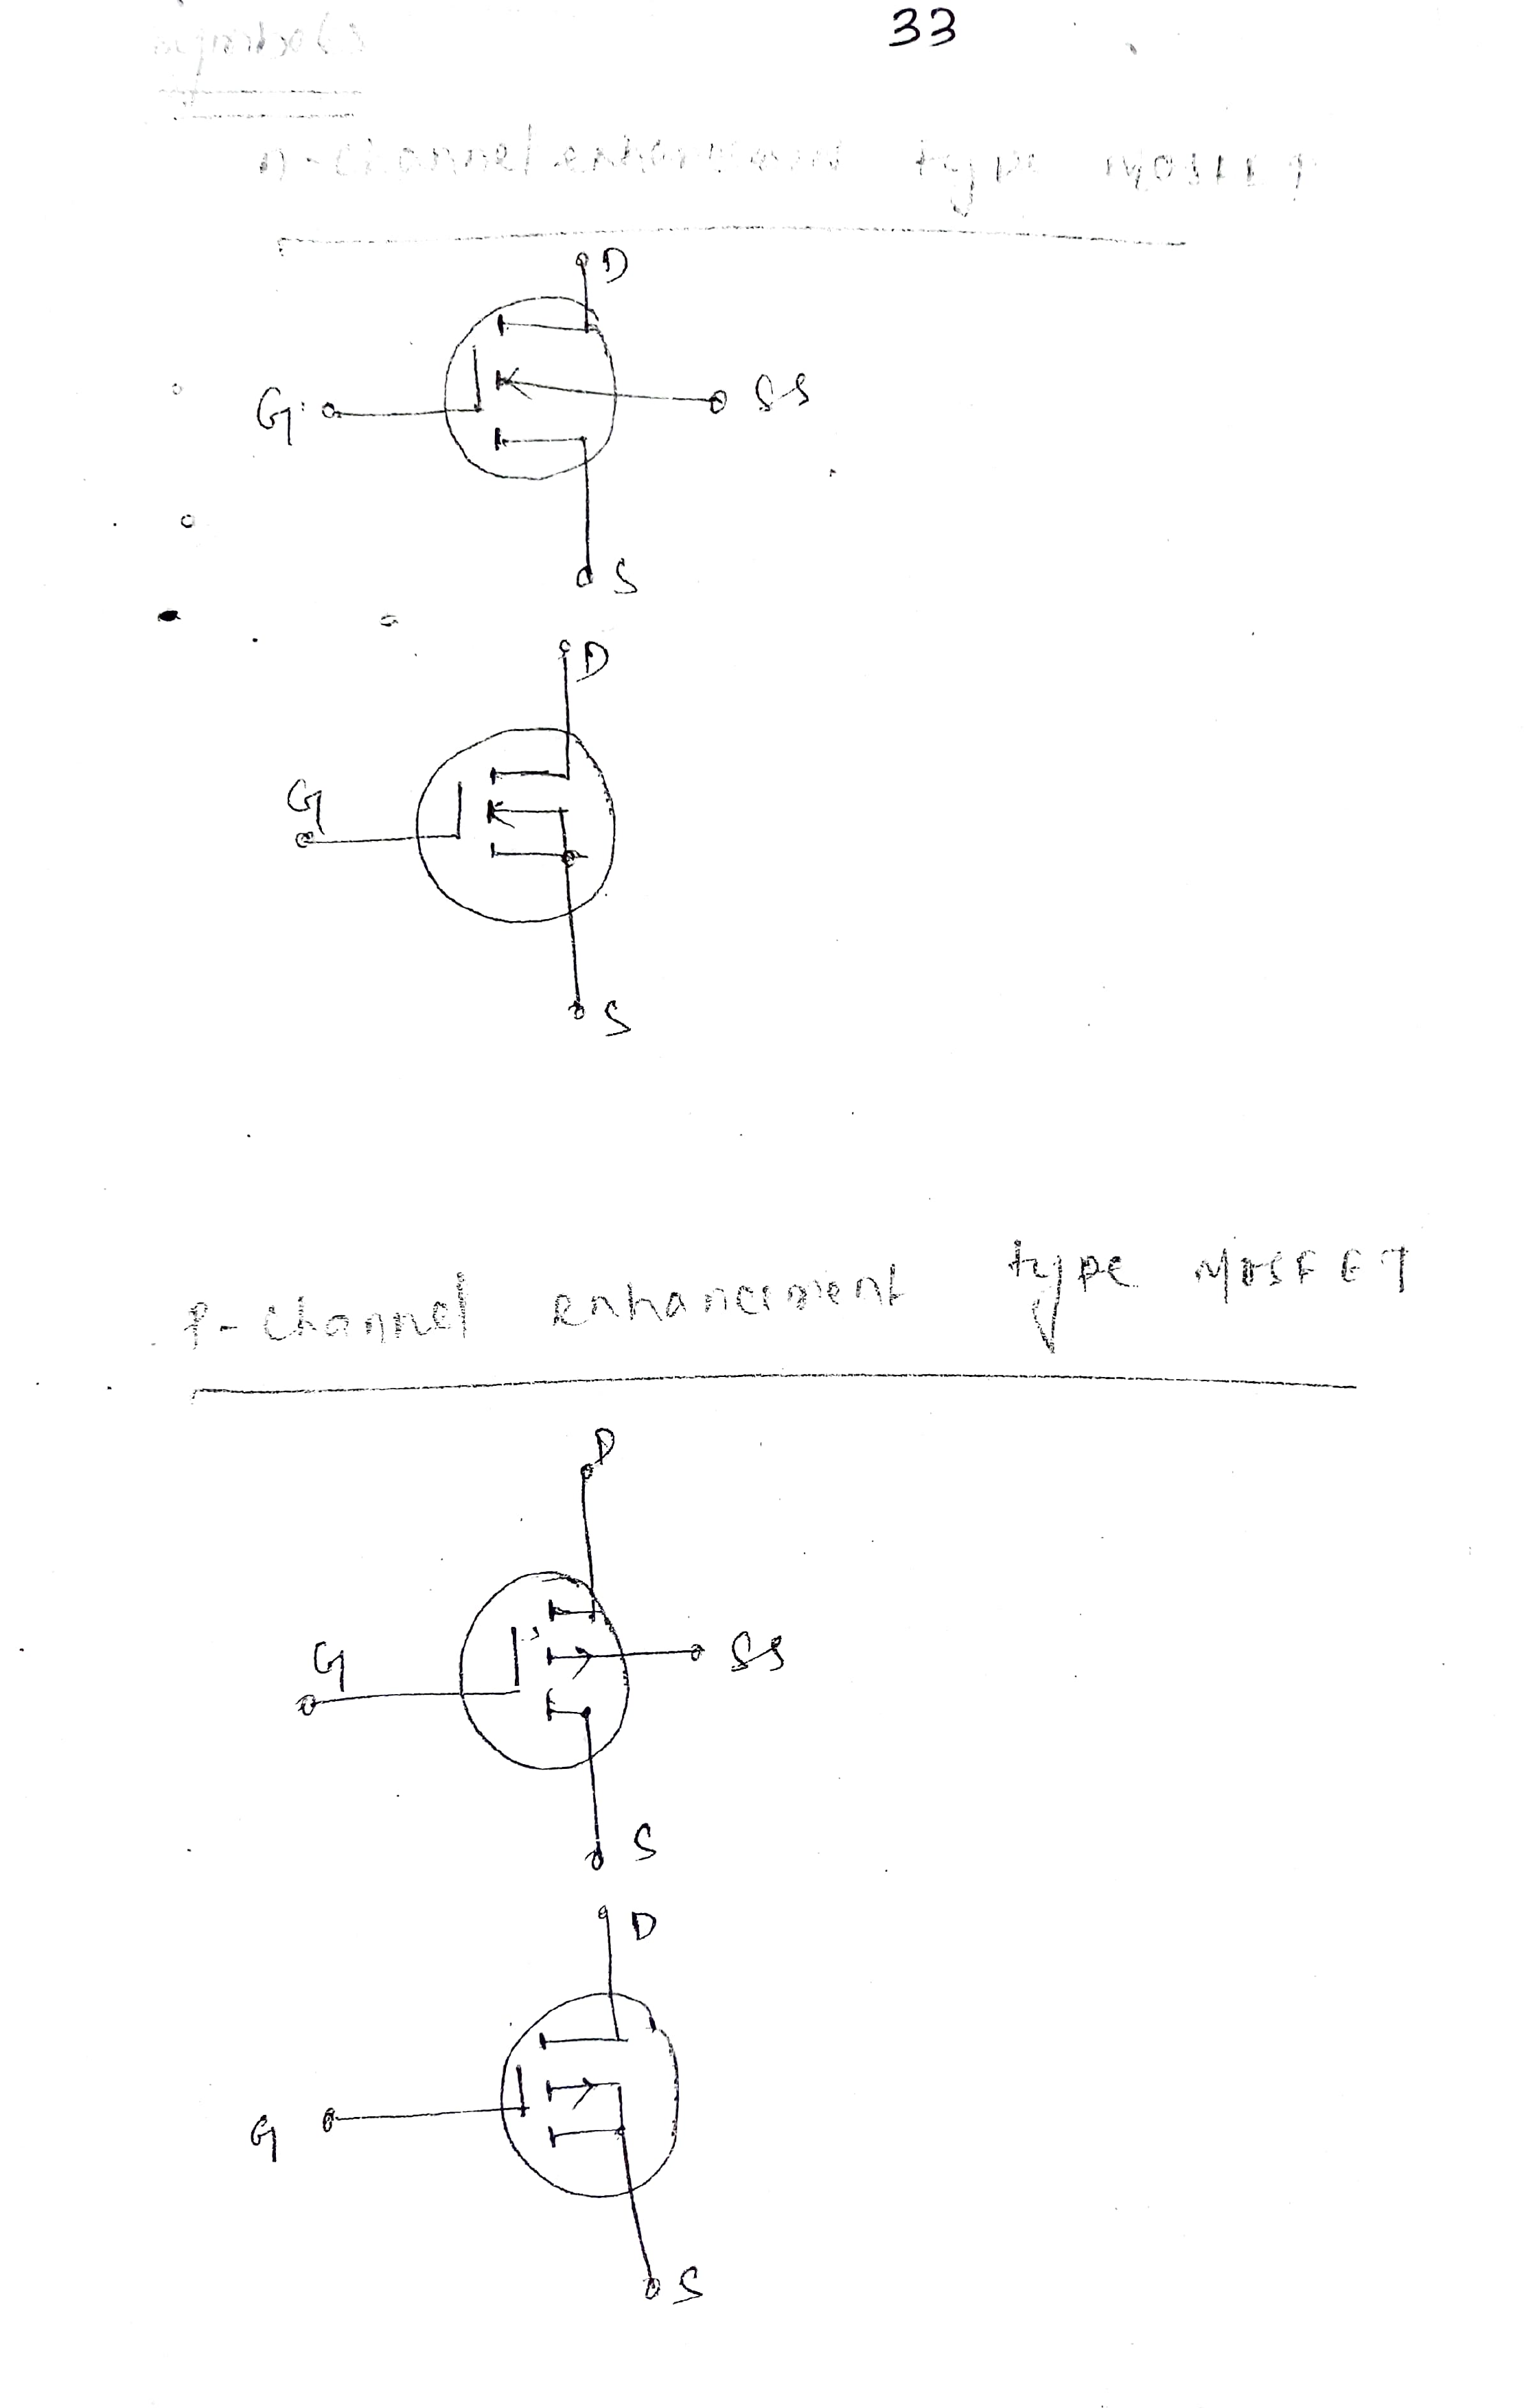 33
symbols
n-channel enhancement type MOSFET
D
G
SS
S
D
G
S
P-channel enhancement type MOSFET
D
G
SS
S
D
G
S